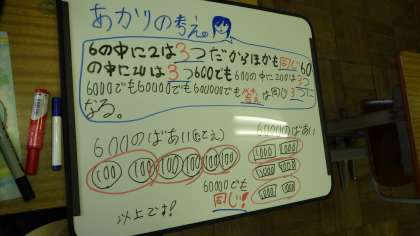 あかりの考え。
6の中に2は3つだからほかも同じ60
の中に20は3つ600でも600の中に200は3つ
6000でも60000でも600000でも答えは同じ3つに
なる。
600のばあい
6000のばあい
100 100 100 100 100 100
1000 1000
1000 1000
1000 1000
60000でも
同じ!
以上です!